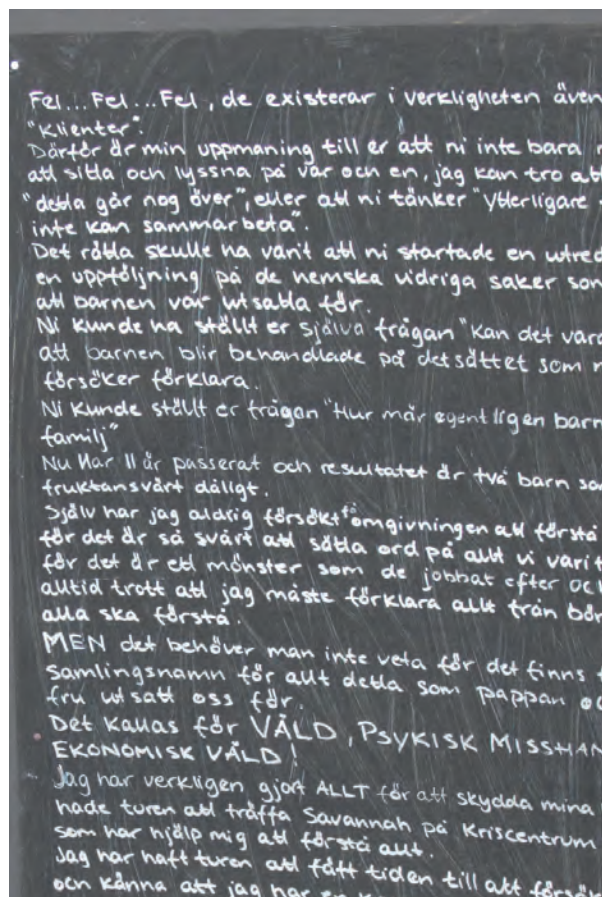 Fel...Fel...Fel, de existerar i verkligheten även
"klienter".
Därför är min uppmaning till er att ni inte bara
att sitta och lyssna på var och en, jag kan tro att
"detta går nog över", eller att ni tänker "Ytterligare
inte kan sammarbeta".
Det rätta skulle ha varit att ni startade en utred
en uppföljning på de hemska vidriga saker som
att barnen var utsatta för.
Ni kunde ha ställt er själva frågan "Kan det vara
att barnen blir behandlade på det sättet som
försöker förklara.
Ni kunde ställt er frågan "Hur mår egentligen barn
familj"
Nu Har 11 år passerat och resultatet är två barn som
fruktansvärt dåligt.
Själv har jag aldrig försökt få omgivningen att förstå
för det är så svårt att sätta ord på allt vi varit
för det är ett mönster som de jobbat efter och
alltid trott att jag måste förklara allt från bör
alla ska förstå.
MEN det behöver man inte veta för det finns
Samlingsnamn för allt detta som pappan oc
fru utsatt oss för.
Det kallas för VÅLD, PSYKISK MISSHAN
EKONOMISK VÅLD!
Jag har verkligen gjort ALLT för att skydda mina
hade turen att träffa Savannah på Kriscentrum
som har hjälp mig att förstå allt.
Jag har haft turen att fått tiden till att försök
och känna att jag har en